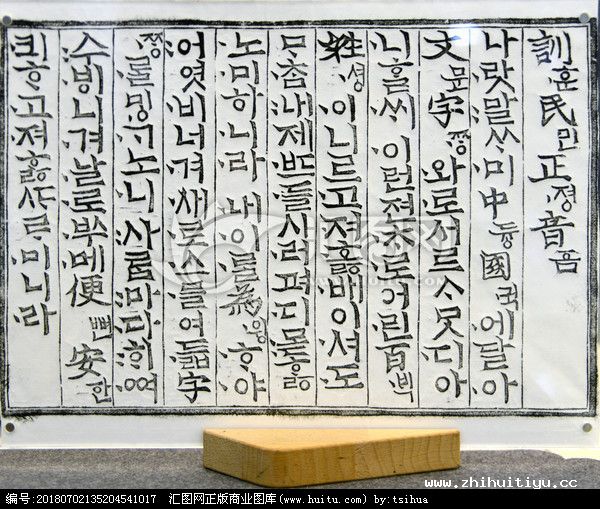 訓훈民민正졍音ᅙᅳᆷ
나랏말ᄊᆞ미中듕國귁에달아
文문字ᄍᆞᆼ와로서르ᄉᆞᄆᆞᆺ디아
니ᄒᆞᆯᄊᆡ이런젼ᄎᆞ로어린百ᄇᆡᆨ
姓셩이니르고져호ᇙ배이셔도
ᄆᆞᄎᆞᆷ내제ᄠᅳ들시러펴디몯ᄒᆞᇙ
노미하니라내이ᄅᆞᆯ爲윙ᄒᆞ야
어엿비너겨새로스믈여듧字
ᄍᆞᆼᄅᆞᆯᄆᆡᇰᄀᆞ노니사ᄅᆞᆷ마다ᄒᆡᅇᅧ
수ᄫᅵ니겨날로ᄡᅮ메便뼌安ᅙᅡᆫ
킈ᄒᆞ고져ᄒᆞᇙᄯᆞᄅᆞ미니라
www.zhihuitiyu.cc
编号:20180702135204541017 汇图网正版商业图库(www.huitu.com) by:tsihua